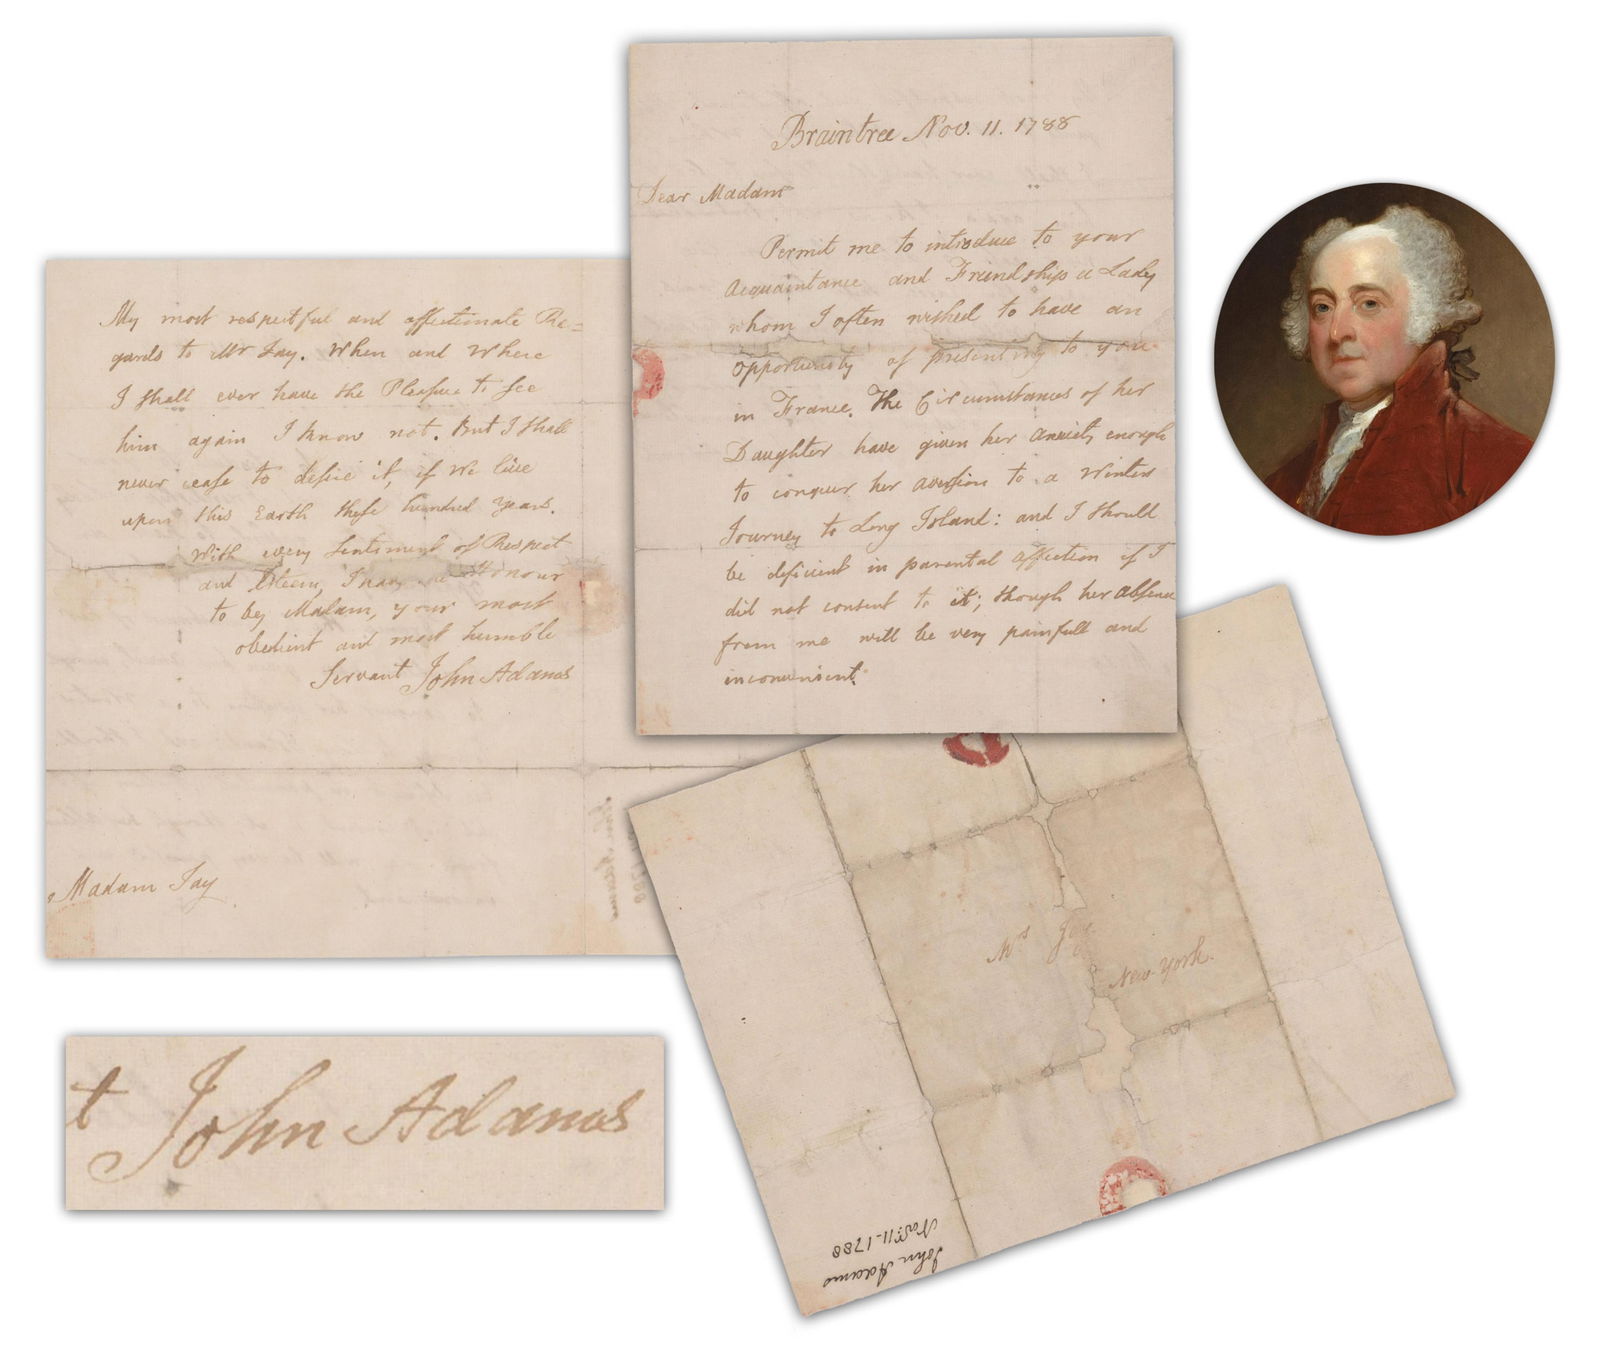 Braintree Nov. 11. 1788
Dear Madam
Permit me to introduce to your
Acquaintance and Friendship a Lady
whom I often wished to have an
opportunity of presenting to you
in France. The Circumstances of her
Daughter have given her anxiety enough
to conquer her aversion to a Winters
Journey to Long Island: and I should
be deficient in parental affection if I
did not consent to it; though her absence
from me will be very painfull and
inconvenient.
My most respectful and affectionate Re=
gards to Mr Jay. When and where
I shall ever have the Pleasure to see
him again I know not. But I shall
never cease to desire it, if We live
upon this Earth these hundred years.
With every Sentiment of Respect
and Esteem, I have the Honour
to be, Madam, your most
obedient and most humble
Servant John Adams
Madam Jay
t John Adams
Mrs Jay
New York.
John Adams
Novr. 11-1788